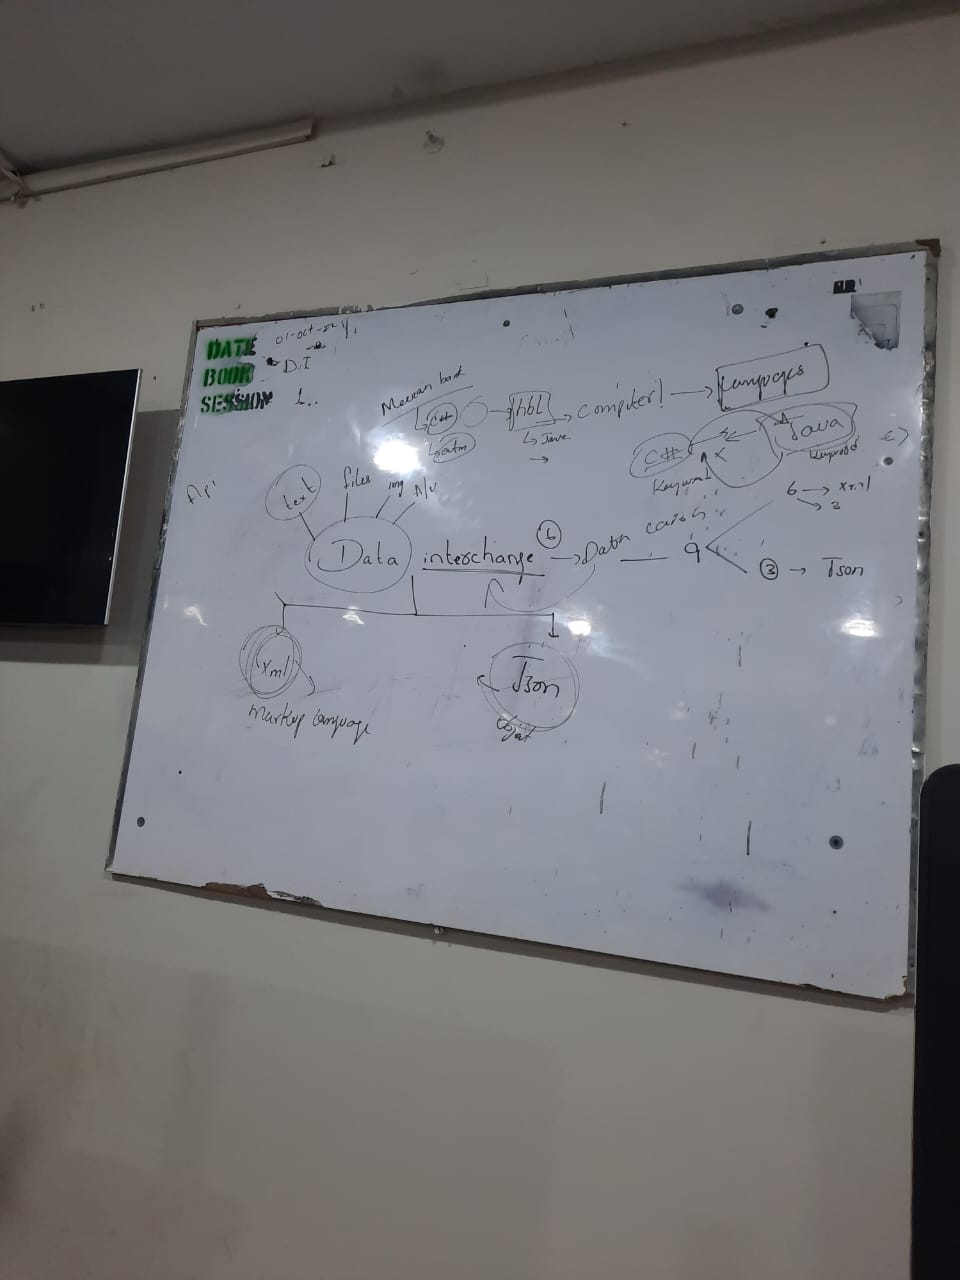 DATE 01-Oct-24
BOOK D.I
SESSION 1..
Meezan bank
C#
atm
hbl
Java
Computer!
Languages
C#
Keyword
Java
Keyword
Api
text
files
img
A/V
Data interchange
6
Data
9
6 → Xml
3
3 → Json
Xml
Markup Language
Json
Object